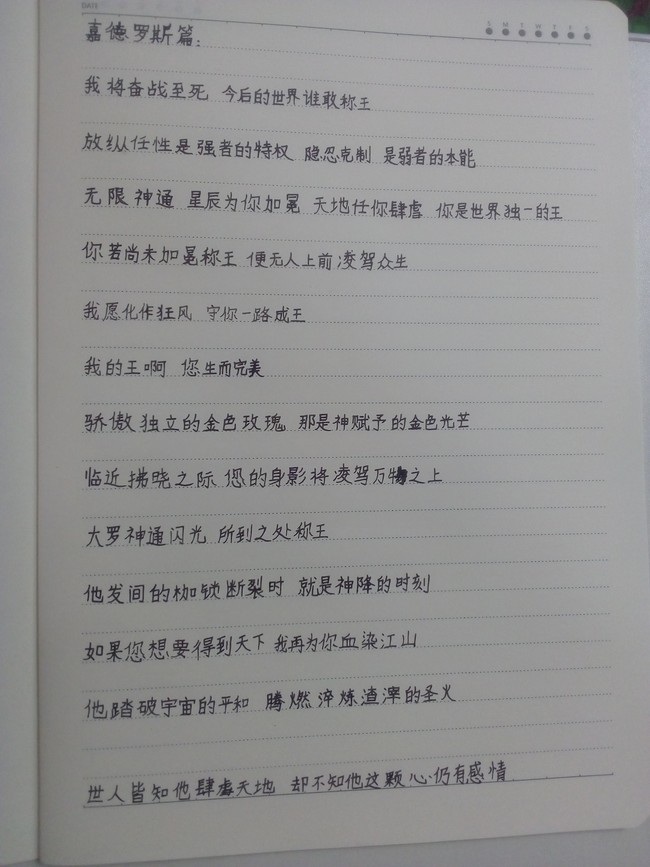 DATE
S M T W T F S
嘉德罗斯篇:
我将奋战至死 今后的世界谁敢称王
放纵任性是强者的特权 隐忍克制 是弱者的本能
无限神通 星辰为你加冕 天地任你肆虐 你是世界独一的王
你若尚未加冕称王 便无人上前凌驾众生
我愿化作狂风 守你一路成王
我的王啊 您生而完美
骄傲独立的金色玫瑰 那是神赋予的金色光芒
临近拂晓之际 您的身影将凌驾万物之上
大罗神通闪光 所到之处称王
他发间的枷锁断裂时 就是神降的时刻
如果您想要得到天下 我再为你血染江山
他踏破宇宙的平和 腾燃淬炼渣滓的圣火
世人皆知他肆虐天地 却不知他这颗心仍有感情